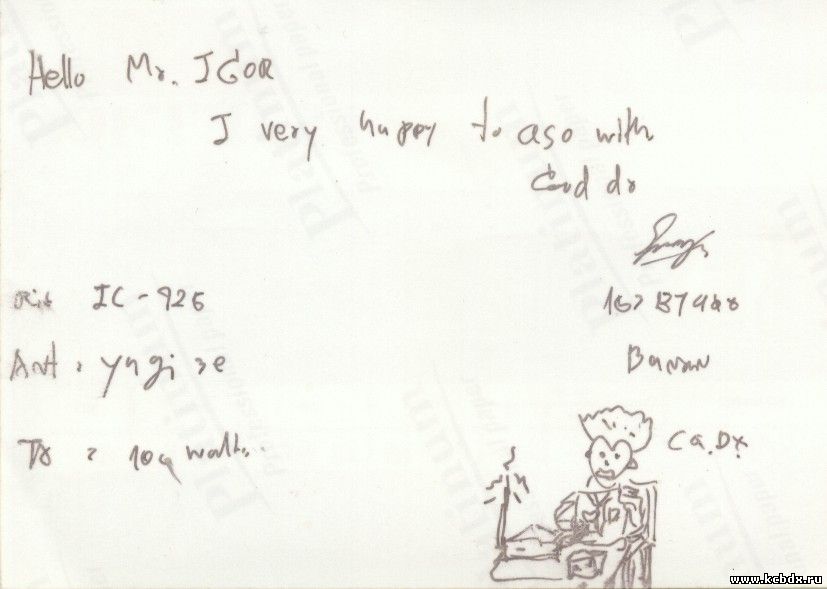 Hello Mr. IGOR
I very happy to qso with
Good dx
Rig IC-725
Ant: yagi 3e
TX : 100 watts.
Banan
CQ.DX.
www.kcbdx.ru